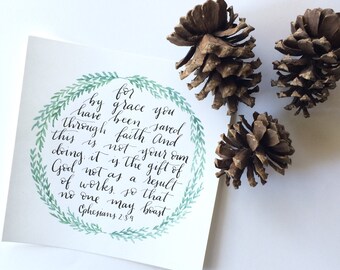 for
by grace you
have been saved
through faith And
this is not your own
doing it is the gift of
God not as a result
of works, so that
no one may boast
Ephesians 2:8-9